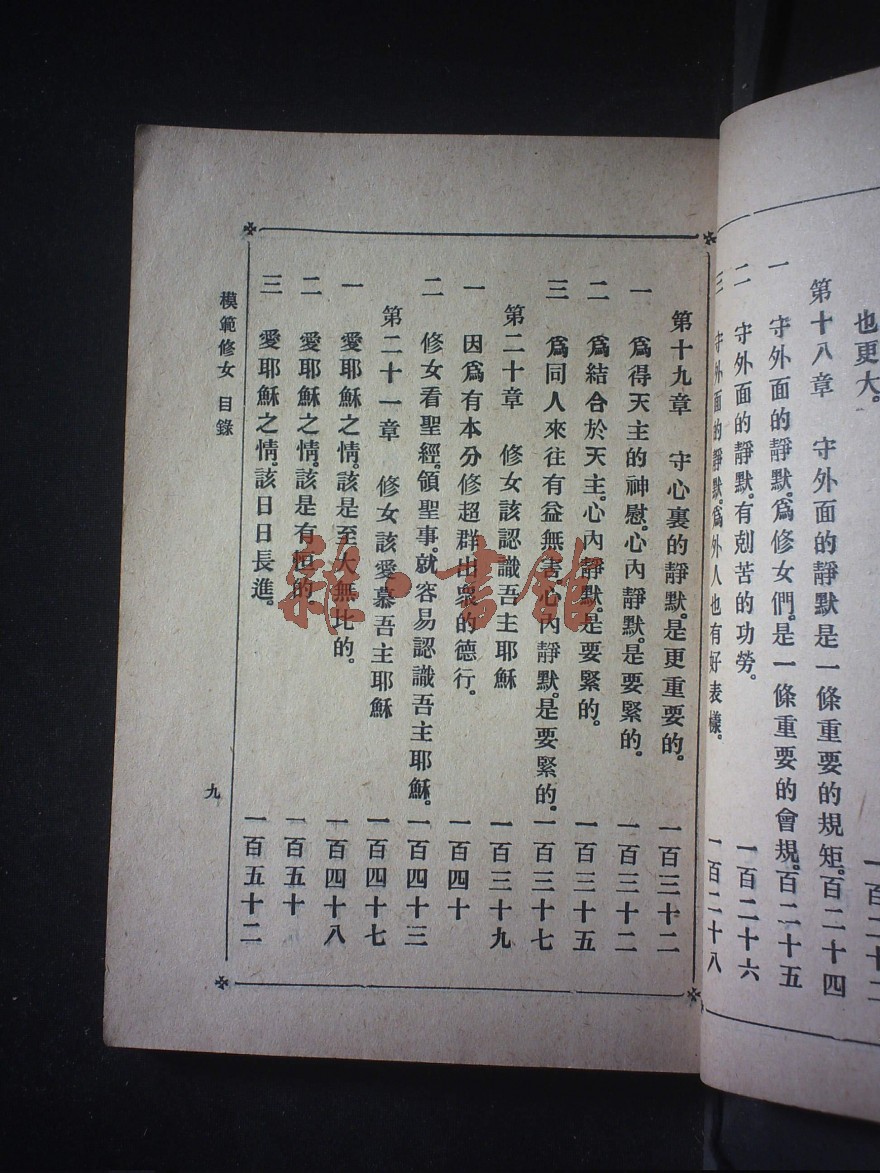 也更大。
第十八章 守外面的靜默是一條重要的規矩。百二十四
一 守外面的靜默。爲修女們。是一條重要的會規。百二十五
二 守外面的靜默。有剋苦的功勞。 一百二十六
三 守外面的靜默。爲外人也有好表樣。 一百二十八
第十九章 守心裏的靜默。是更重要的。 一百三十二
一 爲得天主的神慰。心內靜默。是要緊的。 一百三十二
二 爲結合於天主。心內靜默。是要緊的。 一百三十五
三 爲同人來往有益無害。心內靜默。是要緊的。一百三十七
第二十章 修女該認識吾主耶穌 一百三十九
一 因爲有本分修超群出衆的德行。 一百四十
二 修女看聖經。領聖事。就容易認識吾主耶穌。一百四十三
第二十一章 修女該愛慕吾主耶穌 一百四十七
一 愛耶穌之情。該是至大無比的。 一百四十八
二 愛耶穌之情。該是有恒的。 一百五十
三 愛耶穌之情。該日日長進。 一百五十二
模範修女 目錄 九
雜·書館